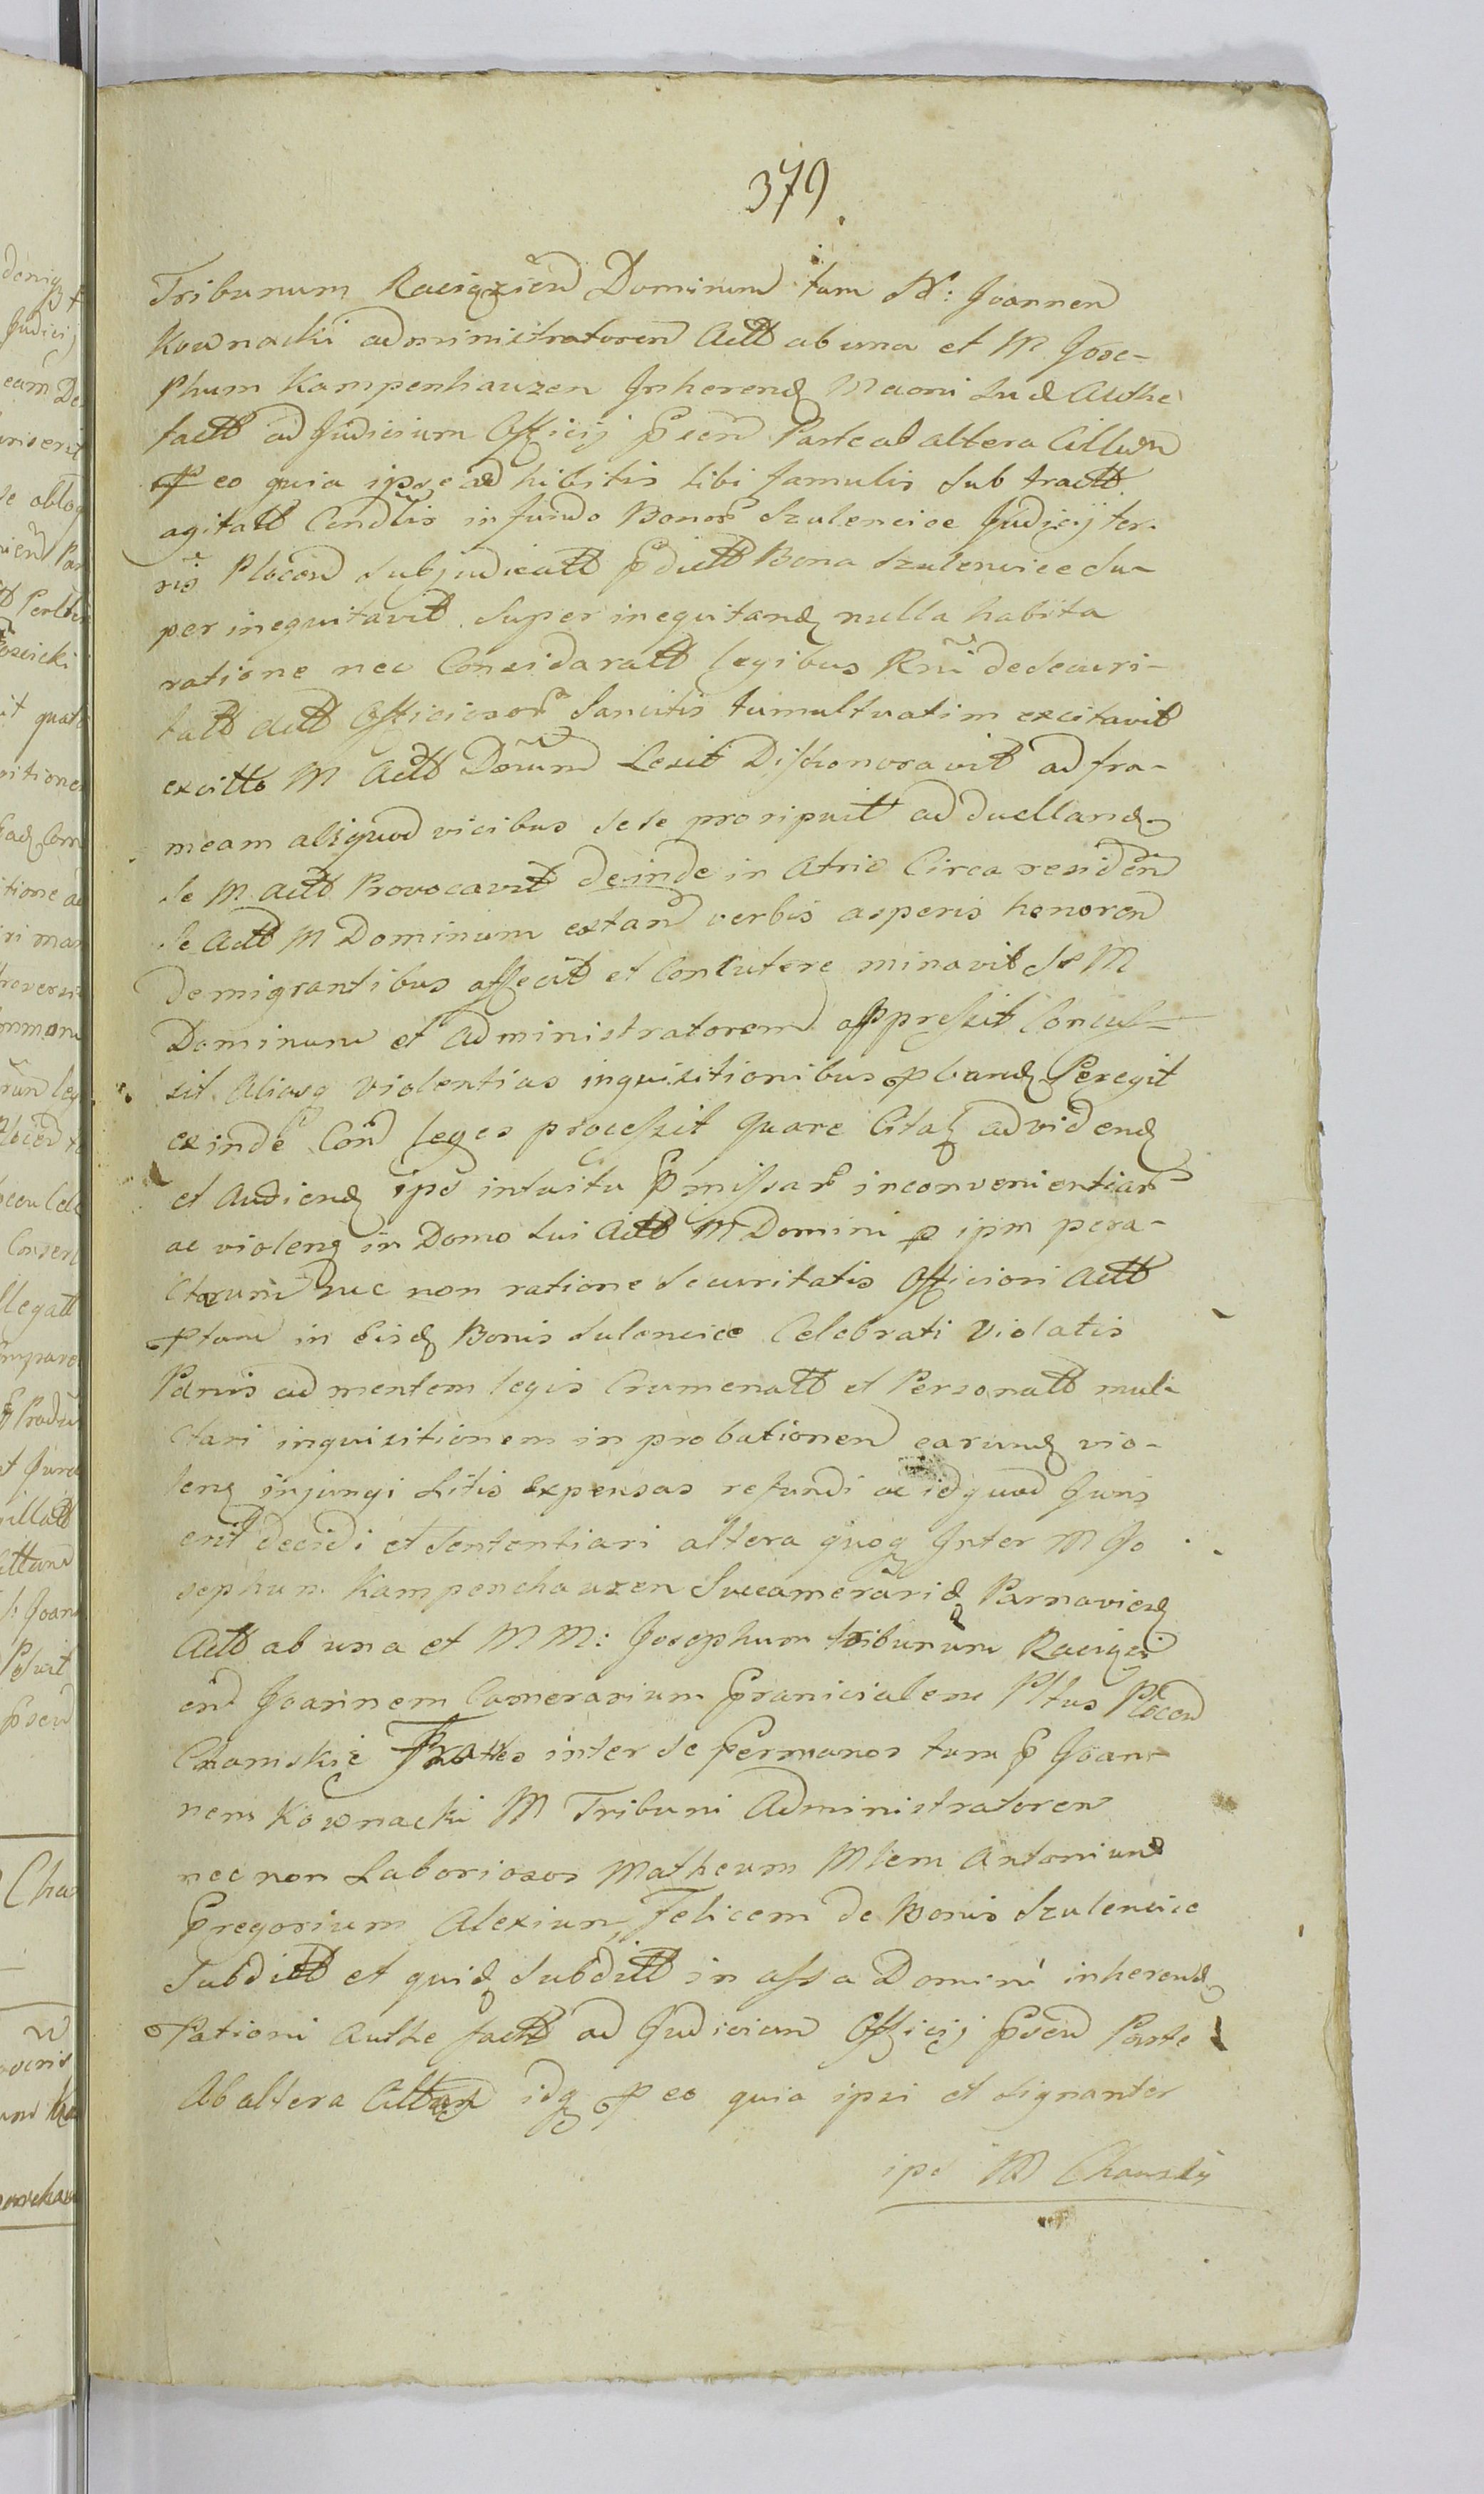 379
Tribunum Raciązien Dominum tum N: Joannem
Kownacki administratorem Actt ab una et M. Jose-
phum Kampenhauzen Inherend Maoni Suæ Authe
factt ad Judicium Officij Psen Parte ab altera Cittum
p eo quia ipse adhibitis sibi famulis sub tractt
agitatt Condtis in fundo Bonor Szulencice Judicij ter-
ris Plocen subjudicatt pdictt Bona Szulencice su-
per inequitavit super inequitand nulla habita
ratione nec Considaratt legibus Rni de securi-
tatt actt Officiosor Sancitis tumultuatim excitavit
excitto M Actt Dnum Lesit Dishonoravit ad fra-
meam aliquod vicibus sese prosipuit ad duelland
se M Actt Provocavit deinde in Atrio Circa residen
se Actt M Dominum extan verbis asperis honorem
demigrantibus affecit et Concutere minavit se M
Dominum et Administratorem oppressit Concus-
sit Aliasq violentias inquisitionibus pband Peregit
exinde Con leges processit quare Citat ad vidend
et Audiend ipse intuitu Pmissar inconvenientiar
ac violeng in Domo sui Actt M Domini p ipm pera-
ctarum nec non ratione securitatis Officiosi Actt
ptum in Eisd Bonis Sulencice Celebrati Violatis
Pænis ad mentem legis Crumenatt et Personatt mul-
ctari inquisitionem in probationem earund vio-
leng injungi Litis Expensas refundi ac id quod Juris
erit decidi et Sententiari altera quoq Inter M Jo
sephum Kampenchauzen Succamerarid Parnavien
Actt ab una et MM: Josephum tribunum Raciązi
en Joannem Camerarium Granicialem Pltus Plocen
Chamskie Frattes inter se Germanos tum G Joan-
nem Kownacki M Tribuni Administratorem
nec non Laboriosos Matheum Mlem Antonium
Gregorium Alexium, Felicem de Bonis Szulencice
Subditt et quid subditt in assa Domini inherend
Pationi Authe factt ad Judicium Officij Psen Parte
Ab altera Cittum idq p eo quia ipsi et signanter
ipse M Chamski